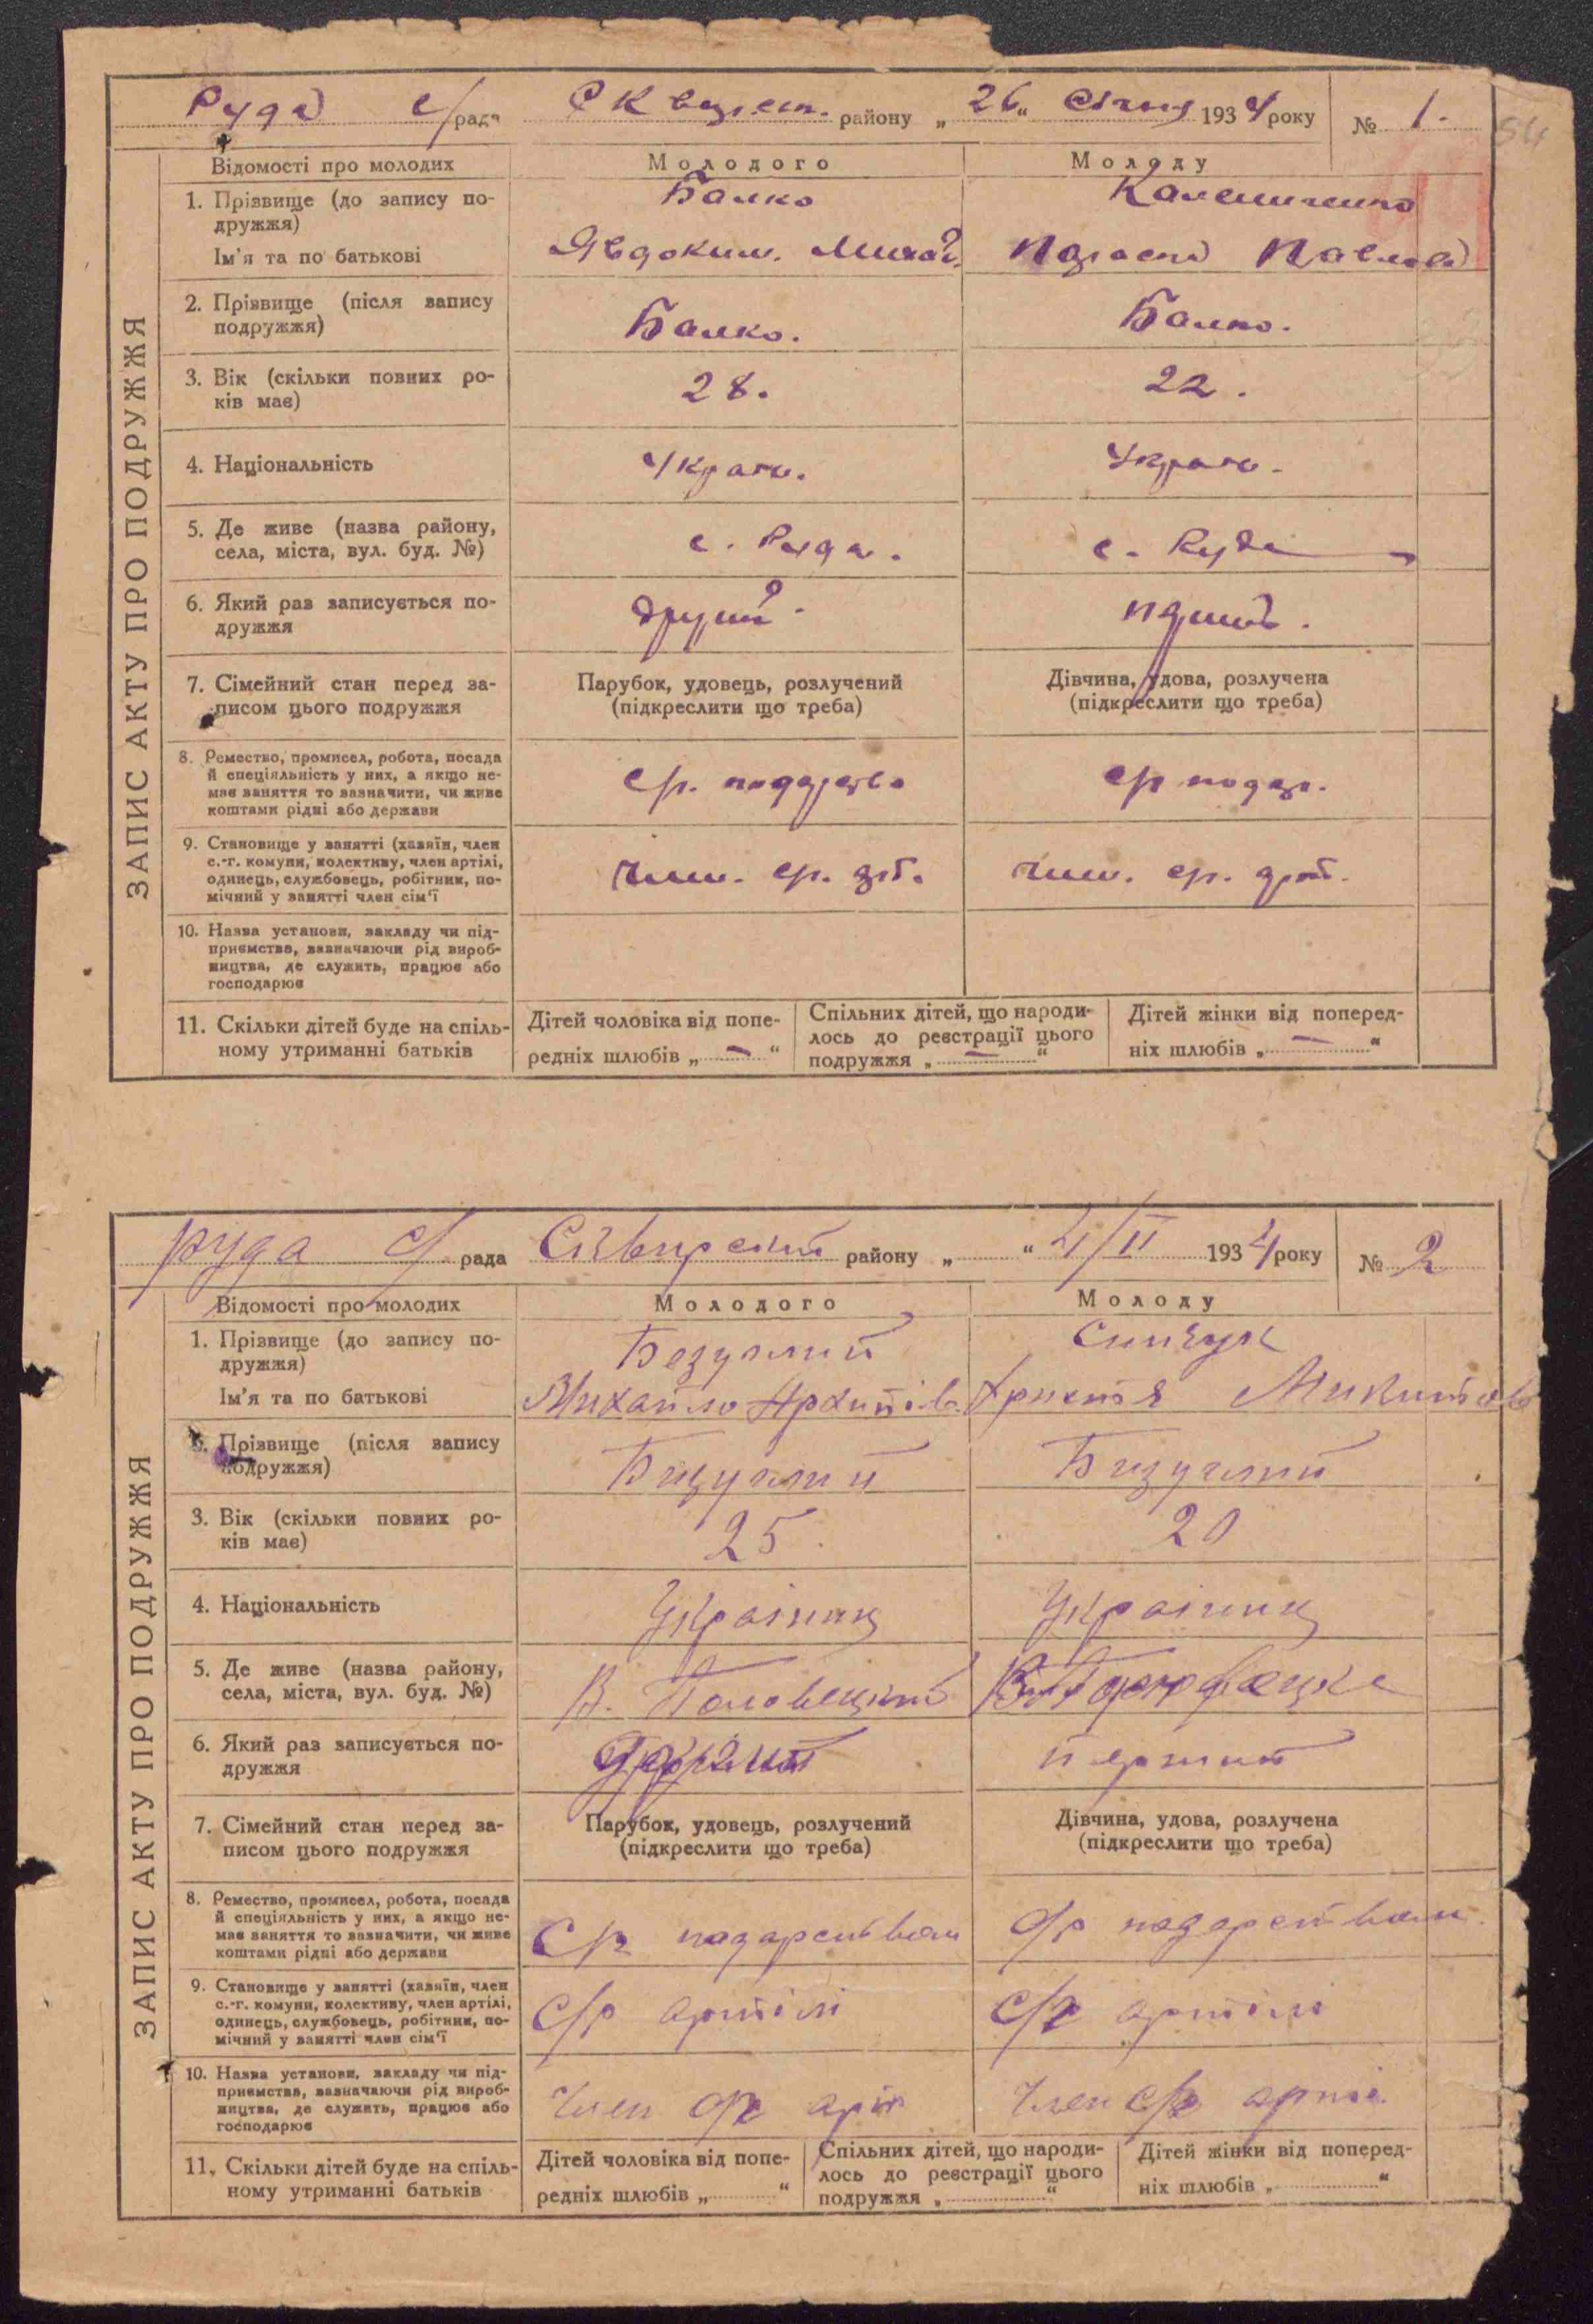 Руда с/рада Сквирськ. району „26“ Січня 1934 року № 1.
54
ЗАПИС АКТУ ПРО ПОДРУЖЖЯ
Відомості про молодих Молодого Молоду
1. Прізвище (до запису по-
дружжя) Балко
Ім'я та по батькові Явдоким. Михай. Павлова
2. Прізвище (після запису
подружжя) Балко. Балко.
3. Вік (скільки повних ро-
ків має) 28. 22.
4. Національність Україн. Україн.
5. Де живе (назва району,
села, міста, вул. буд. №) с. Руда. с. Руда
6. Який раз записується по-
дружжя другий перший.
7. Сімейний стан перед за-
писом цього подружжя
Парубок, удовець, розлучений
(підкреслити що треба)
Дівчина, удова, розлучена
(підкреслити що треба)
8. Ремество, промисел, робота, посада
й спеціяльність у них, а якщо не-
має заняття то зазначити, чи живе
коштами рідні або держави
9. Становище у занятті (хазяїн, член
с.-г. комуни, колективу, член артілі,
одинець, службовець, робітник, по-
мічний у занятті член сім'ї
10. Назва установи, закладу чи під-
приємства, зазначаючи рід вироб-
ництва, де служить, працює або
господарює
11. Скільки дітей буде на спіль-
ному утриманні батьків
Дітей чоловіка від попе-
редніх шлюбів „ — “
Спільних дітей, що народи-
лось до реєстрації цього
подружжя „ — “
Дітей жінки від поперед-
ніх шлюбів „ — “
руда с/рада Сквирский району „ “ 4/II 1934 року № 2
ЗАПИС АКТУ ПРО ПОДРУЖЖЯ
Відомості про молодих Молодого Молоду
1. Прізвище (до запису по-
дружжя) Безуглий
Ім'я та по батькові Михайло Архипів. Микитова
2. Прізвище (після запису
подружжя) Бизуглий Бизуглий
3. Вік (скільки повних ро-
ків має) 25 20
4. Національність Українц Українц
5. Де живе (назва району,
села, міста, вул. буд. №) В. Половецкий
6. Який раз записується по-
дружжя перший
7. Сімейний стан перед за-
писом цього подружжя
Парубок, удовець, розлучений
(підкреслити що треба)
Дівчина, удова, розлучена
(підкреслити що треба)
8. Ремество, промисел, робота, посада
й спеціяльність у них, а якщо не-
має заняття то зазначити, чи живе
коштами рідні або держави
9. Становище у занятті (хазяїн, член
с.-г. комуни, колективу, член артілі,
одинець, службовець, робітник, по-
мічний у занятті член сім'ї
с/г артілі с/г артілі
10. Назва установи, закладу чи під-
приємства, зазначаючи рід вироб-
ництва, де служить, працює або
господарює
Член с/г арт Член с/г арті.
11. Скільки дітей буде на спіль-
ному утриманні батьків
Дітей чоловіка від попе-
редніх шлюбів „ “
Спільних дітей, що народи-
лось до реєстрації цього
подружжя „ “
Дітей жінки від поперед-
ніх шлюбів „ “